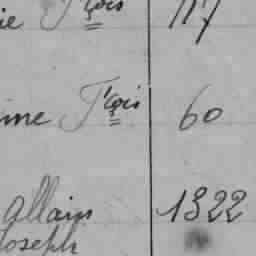 ie Fçois 117
ine Fçois 60
Allain 1322
Joseph